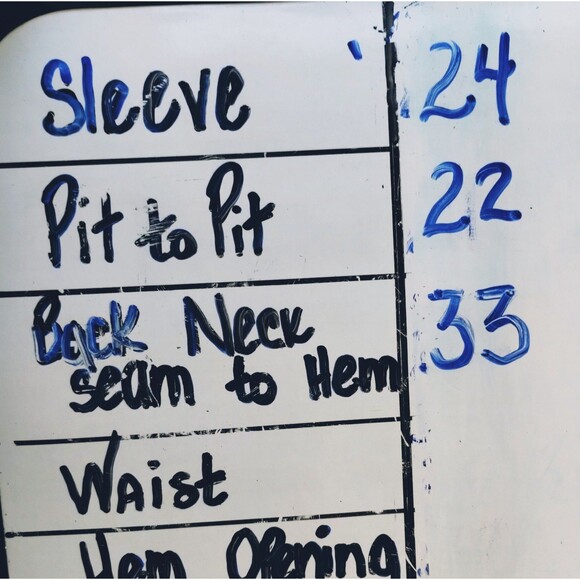 Sleeve 24
Pit to Pit 22
Back Neck 33
seam to Hem
Waist
Hem Opening